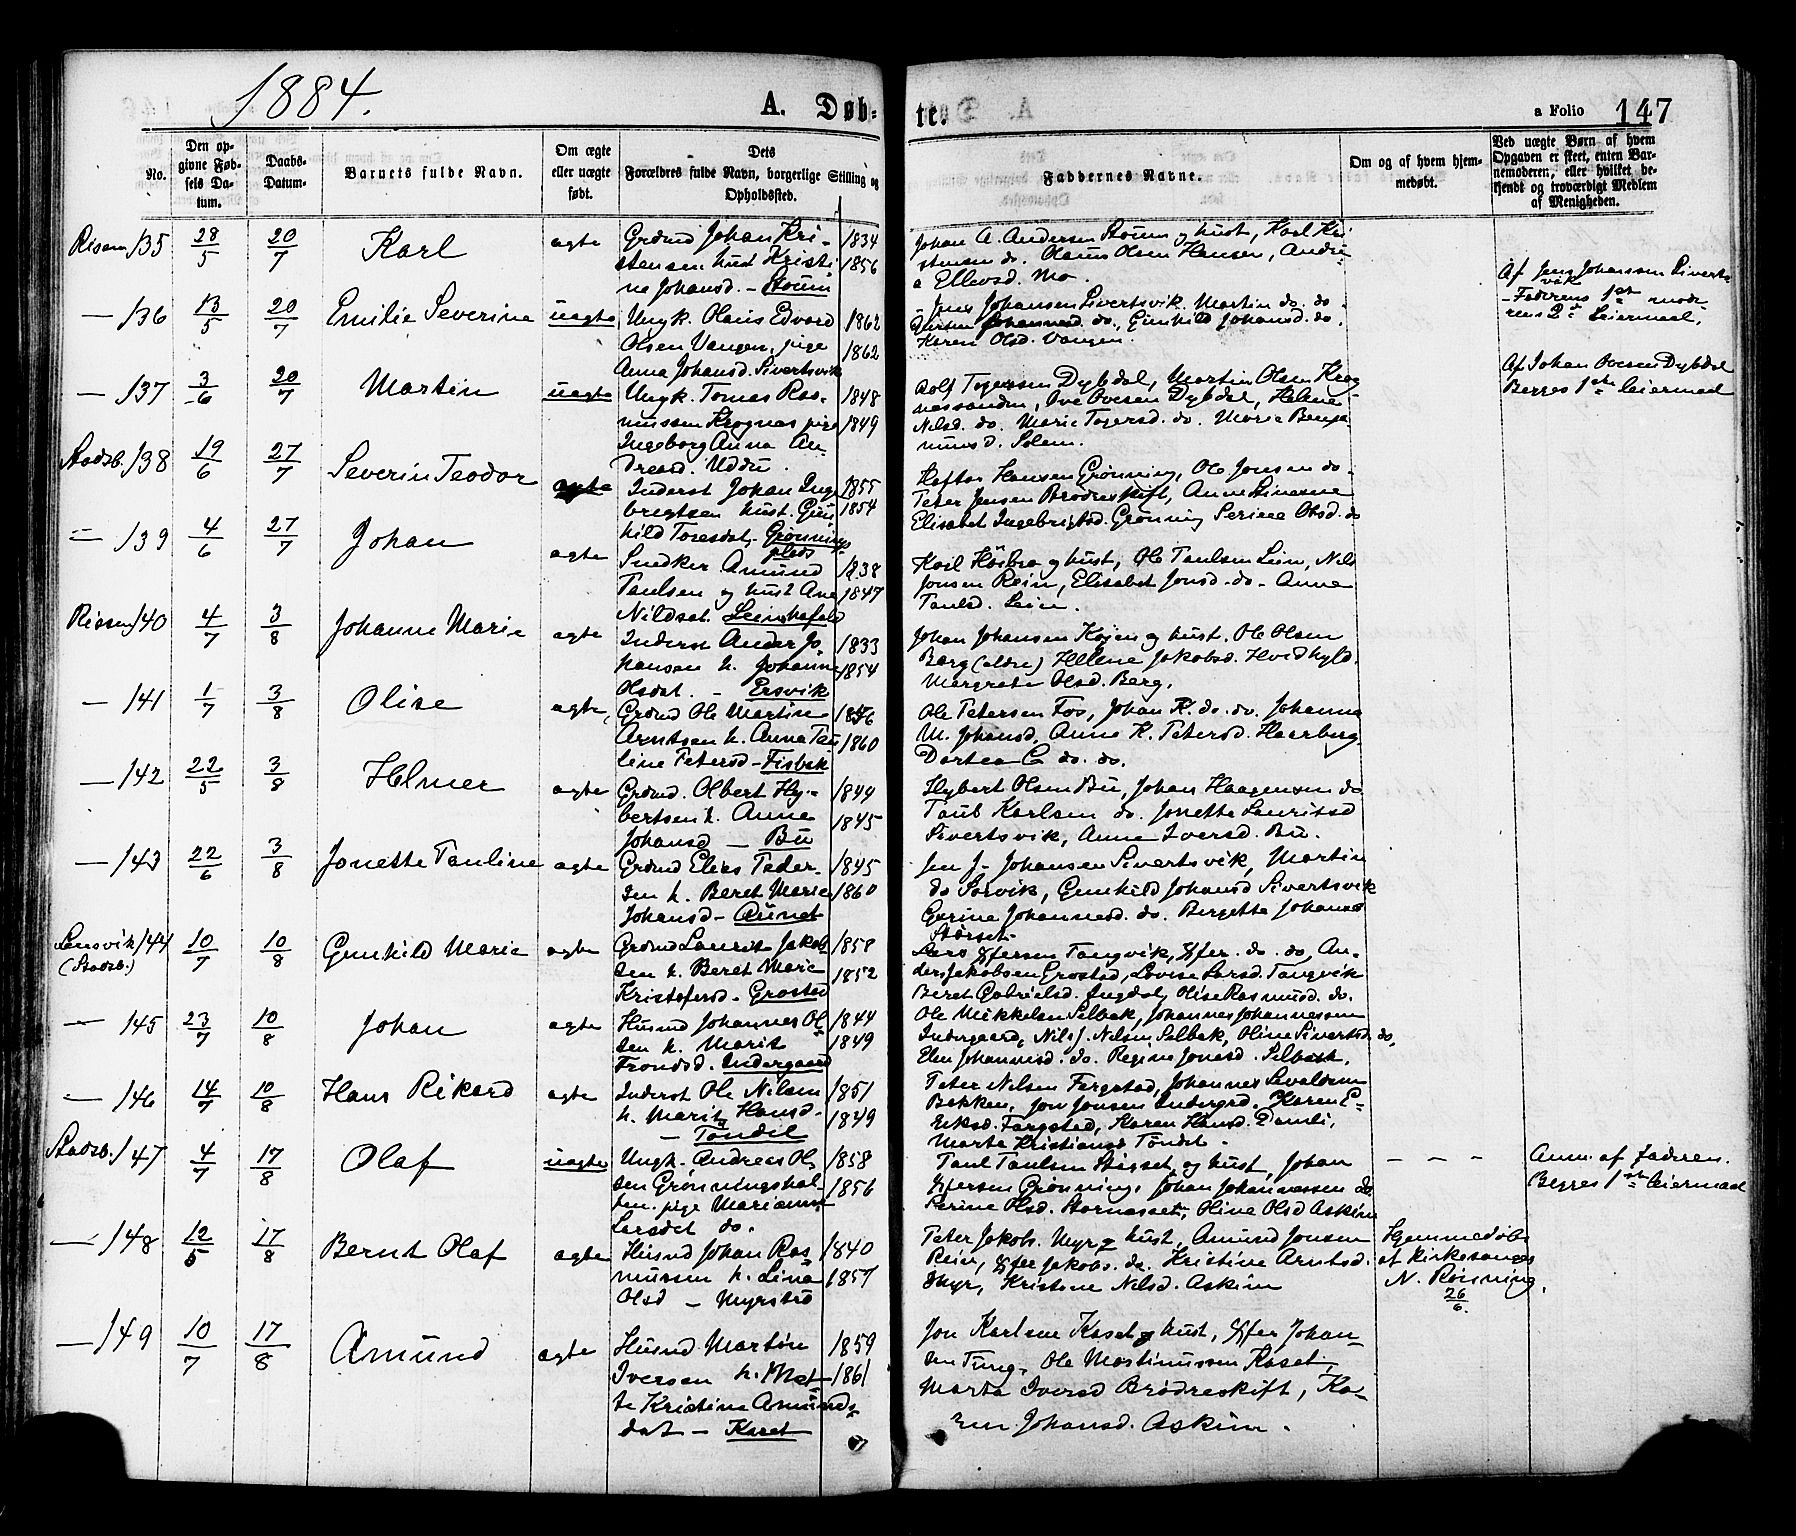 1884.
A. Døb-
te.
a Folio 147
No.
Den op-
givne Fød-
sels Da-
tum.
Daabs-
Datum.
Barnets fulde Navn.
Om ægte
eller uægte
født.
Dets
Forældres fulde Navn, borgerlige Stilling og
Opholdssted.
Faddernes Navne.
Om og af hvem hjem-
medøbt.
Ved uægte Børn af hvem
Opgaven er skeet, enten Bar-
nemoderen, eller hvilket be-
kjendt og troværdigt Medlem
af Menigheden.
Rissem 135 28/5 20/7 Karl ægte
Grdmd Johan Kri- 1834
stensen hust Kristi 1856
ne Johansd. - Stoum
Johan A. Andersen Stoum og hust, Karl Kri
stensen do. Olaus Olsen Hansen, Andri-
a Ellevsd. Mo.
— 136 13/5 20/7 Emilie Severine uægte
Ungk. Olaus Edvard 1862
Olsen Vangen, pige 1862
Anna Johansd. Sivertsvik
Jens Johansen Sivertsvik. Martin do. do.
Johannesd. do. Gunhild Johansd. do.
Karen Olsd. Vangen.
Af Jens Johansen Siverts-
vik
- Faderens 1ste mode
rens 2de Leiermaal.
— 137 3/6 20/7 Martin uægte
Ungk. Tomas Ras- 1848
mussen Krognes pige 1849
Ingeborg Anna An
dreasd. Uddu.
Rolf Togersen Dybdal, Martin Olsen Krog
nessanden, Ove Ovesen Dybdal, Helene
Nilsd. do. Marie Togersd. do. Marie Benja
minsd. Solem.
Af Johan Ovesen Dybdal
Begges 1ste Leiermaal
Stadsb. 138 19/6 27/7 Severin Teodor ægte
Inderst Johan Inge 1855
brigtsen hust. Gun 1854
hild Toresdat. Grønnings
plads
Haftor Hansen Grønning, Ole Jonsen do.
Peter Jensen Brødreskift, Anne Sivertne
Elisabet Ingebrigtsd. Grønning Serine Olsd. do
= 139 4/6 27/7 Johan ægte
Snedker Amund 1838
Paulsen og hust Ane 1847
Nilsdat. Leinshafeld
Karl Høsbro og hust, Ole Paulsen Lein, Nils
Jonsen Rein, Elisabet Jonsd. do - Anne
Paulsd. Lein.
Rissem 140 4/7 3/8 Johanne Marie ægte
Inderst Ander Jo 1833
hansen h. Johanne 1854
Olsdat. - Ersvik
Johan Johansen Kojen og hust. Ole Olsen
Berg (ældre) Hellene Jakobsd. Hvidhyld.
Margrete Olsd. Berg.
— 141 1/7 3/8 Olise ægte,
Grdmd Ole Martin 1856
Arntsen h. Anna Pau 1860
line Petersd - Fisbek
Ole Petersen Fos, Johan K. do. do. Johanna
M. Johansd. Anne K. Petersd. Haarberg.
Dortea C do. do.
— 142 22/5 3/8 Helmer ægte
Grdmd. Olbert Hy- 1844
bertsen h. Anne 1845
Johansd — Bu
Hybert Olsen Bu, Johan Haagensen do
Paul Karlsen do. Jonette Lauritsd
Sivertsvik, Anne Iversd. Bu.
— 143 22/6 3/8 Jonette Pauline ægte
Grdmd Elias Peder- 1845
sen h. Beret Marie 1860
Johansd - Aunet
Jen J. Johansen Sivertsvik, Martin
do Sørvik, Gunhild Johansd Sivertsvik
Gurine Johannesd. do. Bergette Johans
Størset.
Lensvik 144 10/7 10/8 Gunhild Marie ægte
(Stadsb.)
Grdmd Laurits Jakob 1858
sen h. Beret Marie 1852
Kristofersd. Grostad
Lars Effersen Tangvik, Effer. do. do, An-
ders Jakobsen Grostad, Lovise Larsd. Tangvik
Beret Gabrielsd. Ingdal, Olise Rasmusd. do.
— 145 23/7 10/8 Johan ægte
Husmd Johannes Ol 1844
sen h. Marit 1849
Trondsd. Indergaard
Ole Mikkelsen Selbek, Johannes Johannessen
Indergaard, Nils J. Nilsen Selbek, Oline Sivertsd. do,
Elen Johannesd. do. Regine Jonasd. Selbek.
— 146 14/7 10/8 Hans Rikard ægte
Inderst Ole Nilsen 1851
h. Marit Hansd. 1849
— Tøndel
Peter Nilsen Fergstad, Johannes Sevaldsen
Bakken, Jon Jonsen Indergrd. Karen E-
riksd. Fargstad, Karen Hansd. Damli,
Marta Kristiansd Tøndel.
Stadsb. 147 4/7 17/8 Olaf uægte
Ungk. Andreas Ol 1858
sen Grønningshal- 1856
sen. pige Marianne
Larsdat do.
Paul Paulsen Stigset, og hust, Johan
Effersen Grønning, Johan Johannessen do.
Serine Olsd. Størnesset, Oline Olsd Askim
— — —
Anm. af Faderen.
Begges 1ste Leiermaal
— 148 12/5 17/8 Bernt Olaf ægte
Husmd Johan Ras 1840
mussen h. Lina 1857
Olsd — Myrstad
Peter Jakobs. Myr og hust, Amund Jonsen
Rein, Effer Jakobs. do. Kristine Arntsd.
Myr, Kristine Nilsd. Askim
Hjemmedøbt
af Kirkesanger
N. Rønning.
26/6.
— 149 10/7 17/8 Amund ægte
Husmd Martin 1859
Iversen h. Met 1861
te Kristine Amunds
dat — Karet
Jon Karlsen Kaset og hust, Effer Johan-
sen Tung. Ole Martinussen Kaset,
Marta Iversd Brødreskift, Ka-
ren Johansd. Askim.